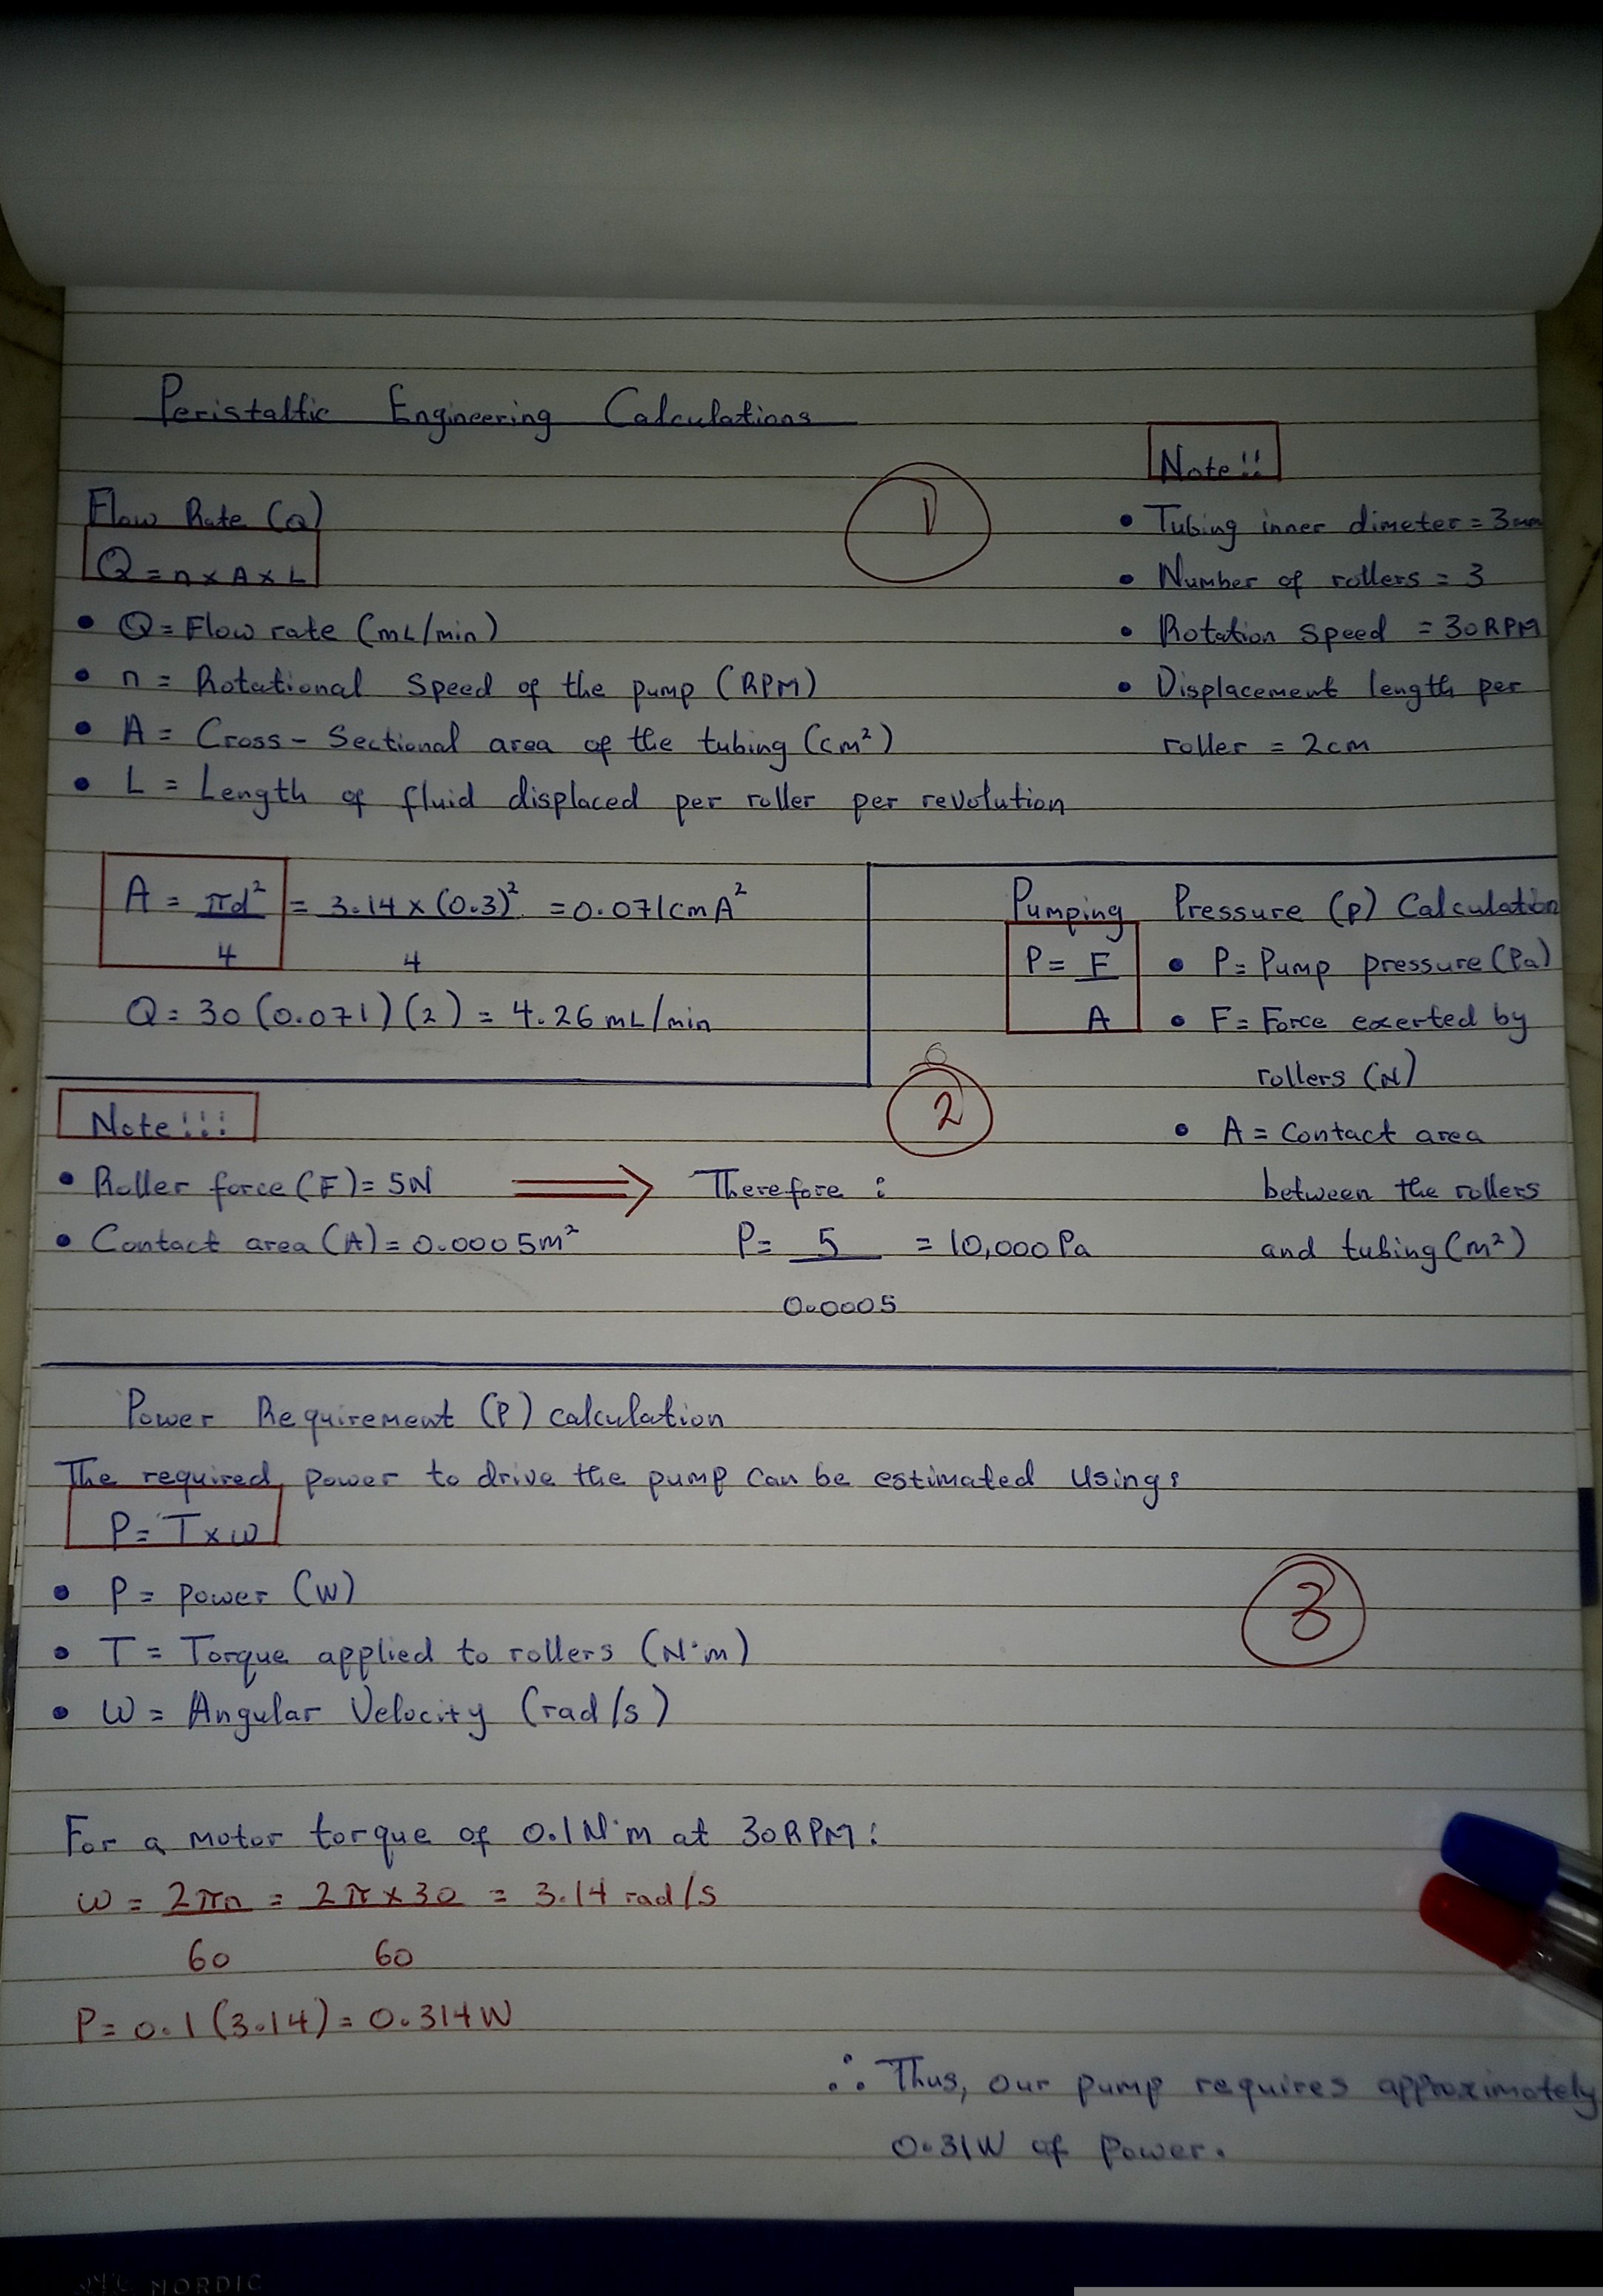 Peristaltic Engineering Calculations
Flow Rate (Q)
Q = n x A x L
• Q = Flow rate (mL/min)
• n = Rotational Speed of the pump (RPM)
• A = Cross-Sectional area of the tubing (cm²)
• L = Length of fluid displaced per roller per revolution
1
Note!!
• Tubing inner dimeter = 3mm
• Number of rollers = 3
• Rotation speed = 30RPM
• Displacement length per
roller = 2cm
A = πd²/4 = 3.14 x (0.3)²/4 = 0.071cmA²
Q = 30(0.071)(2) = 4.26mL/min
Pumping Pressure (P) Calculation
P = F/A
• P = Pump pressure (Pa)
• F = Force exerted by
rollers (N)
• A = Contact area
between the rollers
and tubing (m²)
2
Note!!!
• Roller force (F) = 5N ⟹ Therefore:
• Contact area (A) = 0.0005m² P = 5/0.0005 = 10,000Pa
Power Requirement (P) calculation
The required power to drive the pump can be estimated using:
P = T x ω
• P = power (W)
• T = Torque applied to rollers (N·m)
• ω = Angular Velocity (rad/s)
3
For a motor torque of 0.1N·m at 30RPM:
ω = 2πn/60 = 2π x 30/60 = 3.14 rad/s
P = 0.1(3.14) = 0.314W
∴ Thus, our pump requires approximately
0.31W of power.
NORDIC